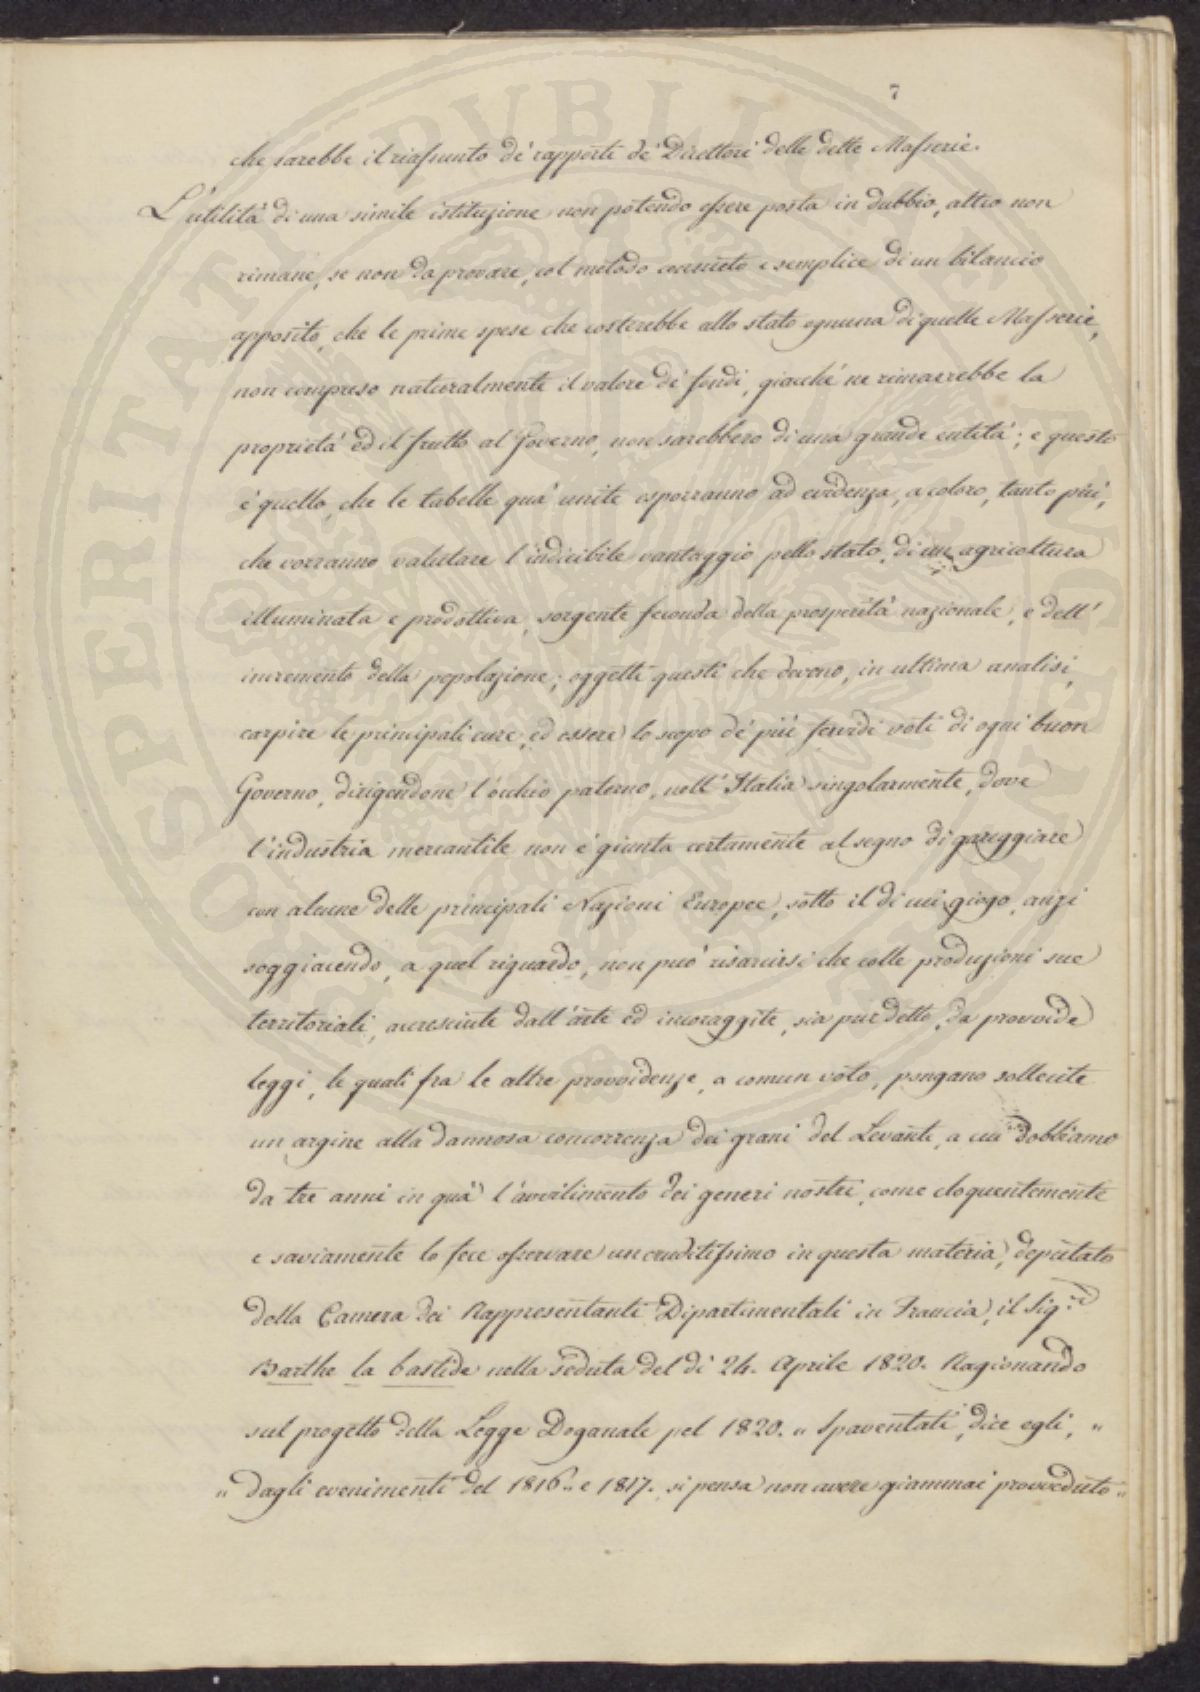 7
che sarebbe il riassunto de' rapporti de' Direttori delle dette Masserie.
L'utilitá di una simile istituzione non potendo essere posta in dubbio, altro non
rimane, se non da provare, col metodo consueto e semplice di un bilancio
apposito, che le prime spese che costerebbe allo stato ognuna di quelle Masserie,
non compreso naturalmente il valore de' fondi, giacché ne rimarrebbe la
proprietá ed il frutto al Governo, non sarebbero di una grande entitá; e questo
é quello, che le tabelle quá unite esporranno ad evidenza, a coloro, tanto piú,
che vorranno valutare l'indicibile vantaggio pello stato, di un agricoltura
illuminata e prodottiva, sorgente feconda della prosperitá nazionale, e dell'
incremento della popolazione; oggetti questi che devono, in ultima analisi,
carpire le principali cure, ed essere lo scopo de' piú fervidi voti di ogni buon
Governo, dirigendone l'occhio paterno, nell'Italia singolarmente, dove
l'industria mercantile non é giunta certamente al segno di gareggiare
con alcune delle principali Nazioni Europee, sotto il di cui giogo, anzi
soggiacendo, a quel riguardo, non puó risarcirsi che colle produzioni sue
territoriali, accresciute dall'arte ed incoraggite, sia pur detto, da provvide
leggi, le quali fra le altre provvidenze, a comun voto, pongano sollecite
un argine alla dannosa concorrenza dei grani del Levante, a cui dobbiamo
da tre anni in quá l'avvilimento dei generi nostri, come eloquentemente
e saviamente lo fece osservare un eruditissimo in questa materia, deputato
della Camera dei Rappresentanti Dipartimentali in Francia, il Sig.re
Barthe la bastide nella seduta del di 24. Aprile 1820. Ragionando
sul progetto della Legge Doganale pel 1820. " Spaventati, dice egli, "
" dagli evenimenti del 1816. e 1817. si pensa non avere giammai provveduto "
PROSPERITATI PUBLICAE AUGENDAE